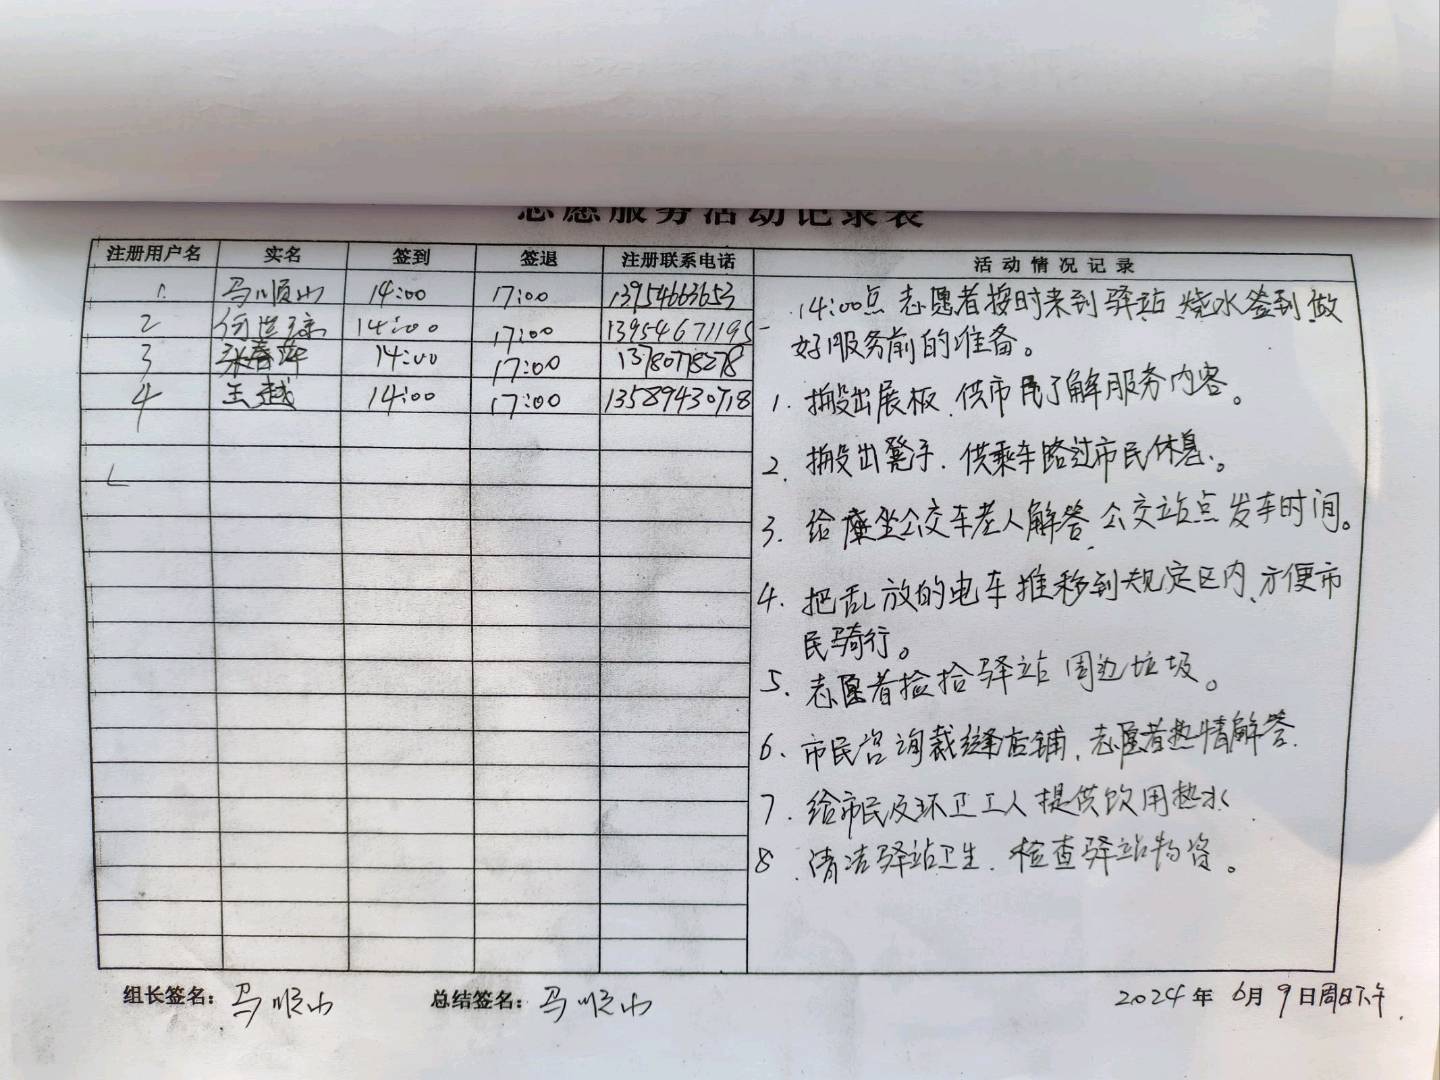 志愿服务活动记录表
注册用户名 实名 签到 签退 注册联系电话 活动情况记录
1. 马顺山 14:00 17:00 13954663653
2 14:00 17:00 13954671195
3 张春萍 14:00 17:00 13780778278
4 王越 14:00 17:00 13589430718
14:00点志愿者按时来到驿站烧水签到做
好服务前的准备。
1. 搬出展板,供市民了解服务内容。
2. 搬出凳子.供乘车路过市民休息。
3. 给乘坐公交车老人解答,公交站点发车时间。
4. 把乱放的电车推移到规定区内,方便市
民骑行。
5. 志愿者捡拾驿站周边垃圾。
6. 市民咨询裁缝店铺,志愿者热情解答.
7. 给市民及环卫工人提供饮用热水.
8 .清洁驿站卫生.检查驿站物资。
组长签名:马顺山 总结签名:马顺山 2024年6月9日周日下午.